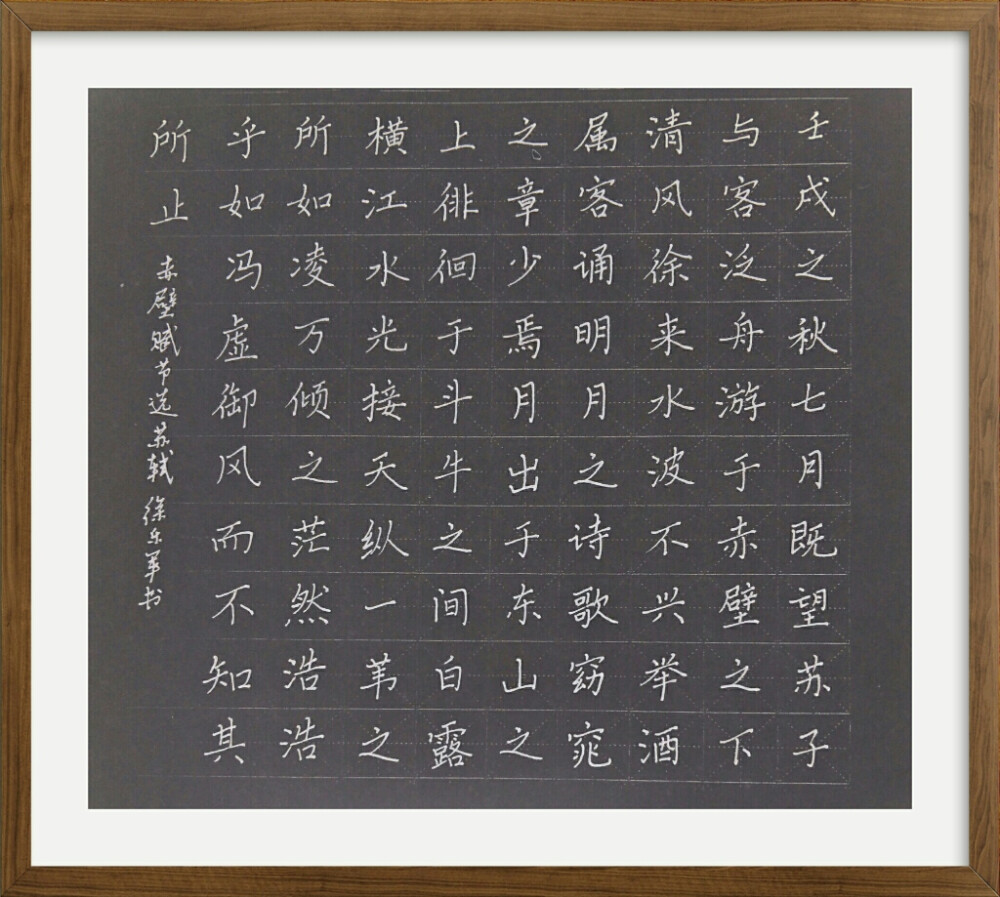 壬戌之秋七月既望苏子
与客泛舟游于赤壁之下
清风徐来水波不兴举酒
属客诵明月之诗歌窈窕
之章少焉月出于东山之
上徘徊于斗牛之间白露
横江水光接天纵一苇之
所如凌万倾之茫然浩浩
乎如冯虚御风而不知其
所止
赤壁赋节选苏轼 徐东军书